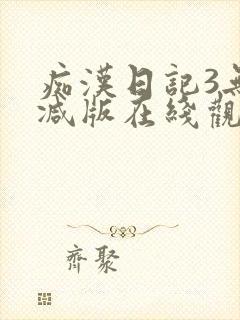 痴漢日記3無
減版在綫觀
齊聚